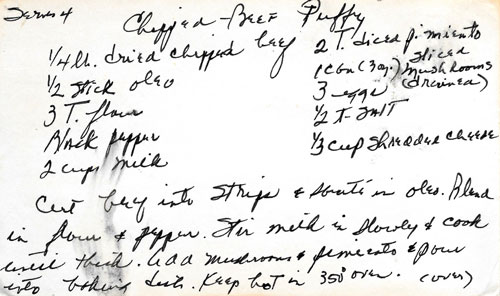 Serves 4
Chipped-Beef Puffy
1/4 lb. dried chipped beef
1/2 stick oleo
3 T. flour
Black pepper
2 cups milk
2 T. diced pimiento
1 can (3 oz.) sliced mushrooms (drained)
3 eggs
1/2 t-salt
1/3 cup shredded cheese
Cut beef into strips & sauté in oleo. Blend
in flour & pepper. Stir milk in slowly & cook
until thick. Add mushrooms & pimiento & pour
into baking dish. Keep hot in 350° oven. (over)